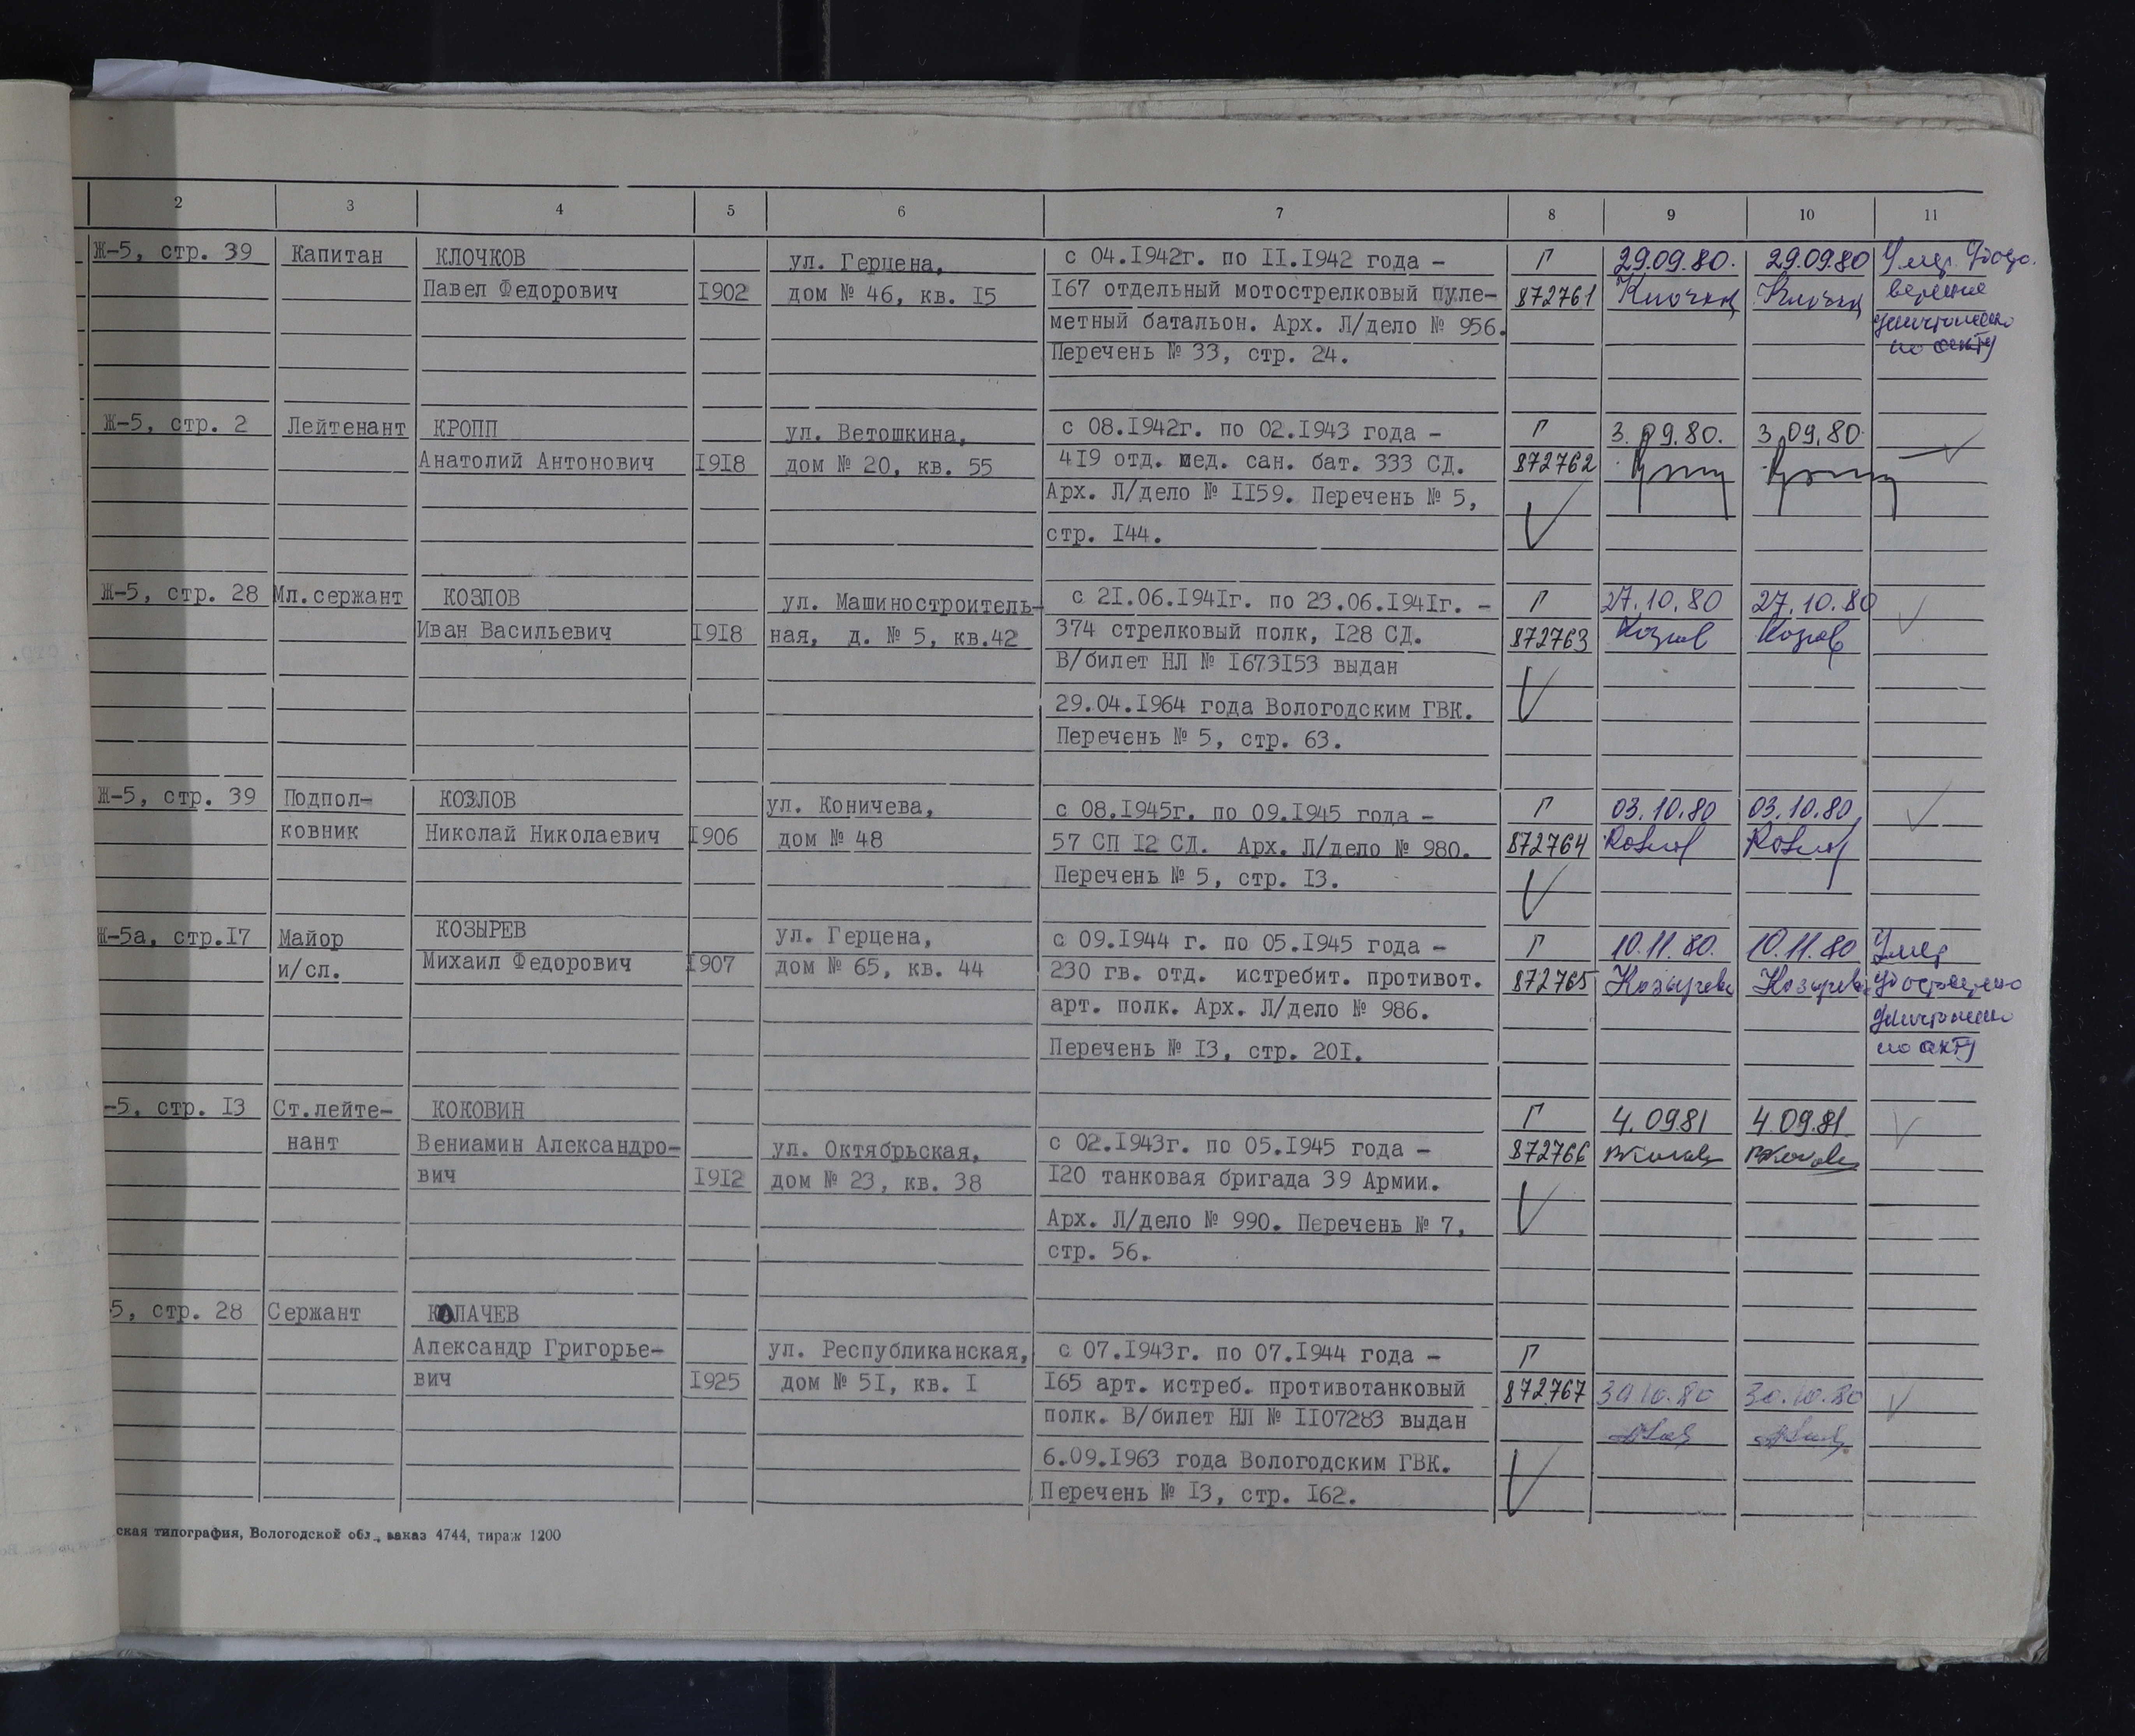 2 3 4 5 6 7 8 9 10 11
Ж-5, стр. 39 Капитан КЛОЧКОВ ул. Герцена, с 04.I942г. по II.I942 года - Г 29.09.80. 29.09.80 Умер. Удосто-
Павел Федорович I902 дом № 46, кв. I5 I67 отдельный мотострелковый пуле- 872761 Клочков Клочков верение
метный батальон. Арх. Л/дело № 956. уничтожено
Перечень № 33, стр. 24. по акту
Ж-5, стр. 2 Лейтенант КРОПП ул. Ветошкина, с 08.I942г. по 02.I943 года - Г 3.09.80. 3.09.80
Анатолий Антонович I9I8 дом № 20, кв. 55 4I9 отд. мед. сан. бат. 333 СД. 872762
Арх. Л/дело № II59. Перечень № 5,
стр. I44.
Ж-5, стр. 28 Мл.сержант КОЗЛОВ ул. Машиностроитель- с 2I.06.I94Iг. по 23.06.I94Iг. - Г 27.10.80 27.10.80
Иван Васильевич I9I8 ная, д. № 5, кв.42 374 стрелковый полк, I28 СД. 872763 Козлов Козлов
В/билет НЛ № I673I53 выдан
29.04.I964 года Вологодским ГВК.
Перечень № 5, стр. 63.
Ж-5, стр. 39 Подпол- КОЗЛОВ ул. Коничева, с 08.I945г. по 09.I945 года - Г 03.10.80 03.10.80
ковник Николай Николаевич I906 дом № 48 57 СП I2 СД. Арх. Л/дело № 980. 872764 Козлов Козлов
Перечень № 5, стр. I3.
Ж-5а, стр.I7 Майор КОЗЫРЕВ ул. Герцена, с 09.I944 г. по 05.I945 года - Г 10.11.80. 10.11.80 Умер
и/сл. Михаил Федорович I907 дом № 65, кв. 44 230 гв. отд. истребит. противот. 872765 Козырева Козырева
арт. полк. Арх. Л/дело № 986. уничтожено
Перечень № I3, стр. 20I. по акту
-5, стр. I3 Ст.лейте- КОКОВИН Г 4.0981 4.09.81
нант Вениамин Александро- ул. Октябрьская, с 02.I943г. по 05.I945 года - 872766
вич I9I2 дом № 23, кв. 38 I20 танковая бригада 39 Армии.
Арх. Л/дело № 990. Перечень № 7,
стр. 56.
5, стр. 28 Сержант КОЛАЧЕВ
Александр Григорье- ул. Республиканская, с 07.I943г. по 07.I944 года - Г
вич I925 дом № 5I, кв. I I65 арт. истреб. противотанковый 872767 30.10.80 30.10.80
полк. В/билет НЛ № II07283 выдан
6.09.I963 года Вологодским ГВК.
Перечень № I3, стр. I62.
ская типография, Вологодской обл., заказ 4744, тираж 1200